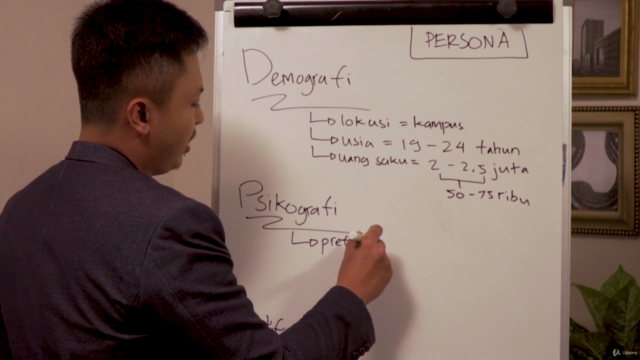 PERSONA
Demografi
lokusi = kampus
usia = 19 - 24 tahun
uang saku = 2 - 2,5 juta
50 - 75 ribu
Psikografi
pref